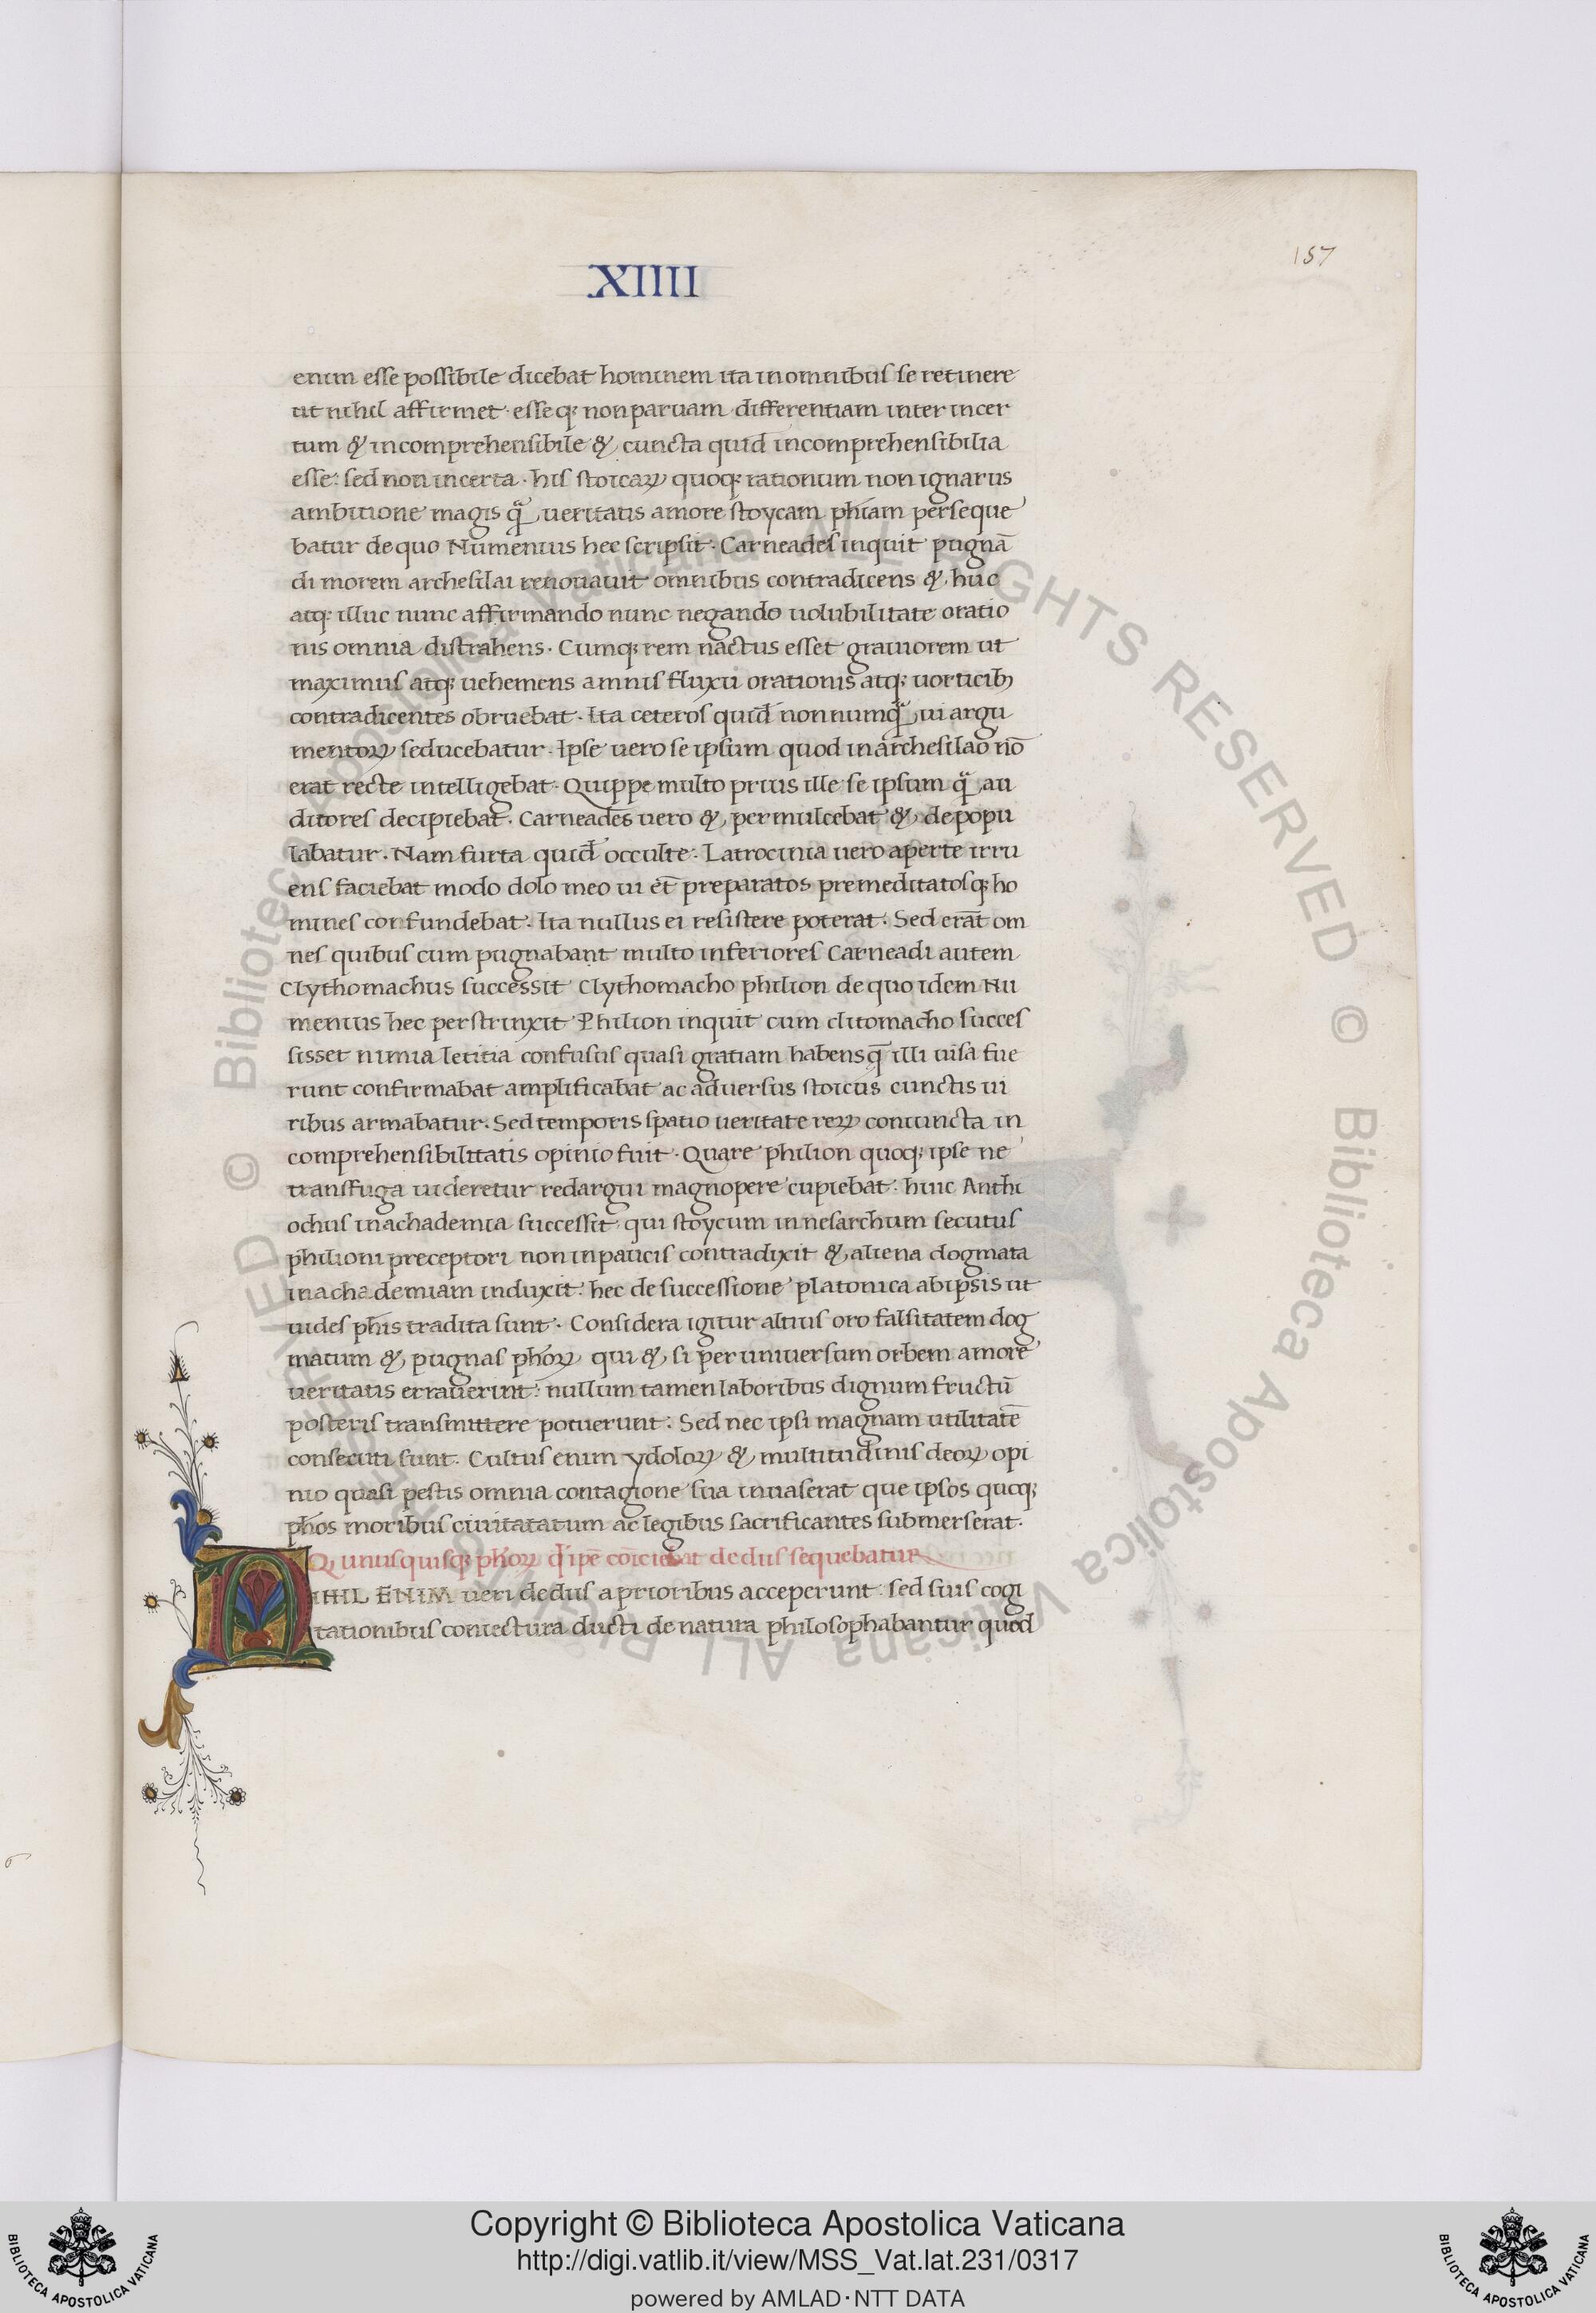 157
XIIII
enim esse possibile dicebat hominem ita in omnibus se retinere
ut nihil affirmet. esseq; non paruam differentiam inter incer
tum & incomprehensibile & cuncta quid incomprehensibilia
esse: sed non incerta. his stoicaꝝ quoq; rationum non ignarus
ambitione magis q̃ ueritatis amore stoycam phiam perseque
batur de quo Numenius hec scripsit. Carneades inquit pugnā
di morem archesilai renouauit omnibus contradicens & huc
atq; illuc nunc affirmando nunc negando uolubilitate oratio
nis omnia distrahens. Cumq; rem nactus esset grauiorem ut
maximus atq; uehemens amnis fluxu orationis atq; uorticib;
contradicentes obruebat. Ita ceteros quid̄ non numq̃ ui argu
mentoꝝ seducebatur. Ipse uero se ipsum quod in archesilao nō
erat recte intelligebat. Quippe multo prius ille se ipsum q̃ au
ditores decipiebat. Carneades uero & permulcebat & depopu
labatur. Nam furta quid̄ occulte. Latrocinia uero aperte irru
ens faciebat modo dolo meo ui et̄ preparatos premeditatosq; ho
mines confundebat. Ita nullus ei resistere poterat. Sed erāt om
nes quibus cum pugnabant multo inferiores Carneadi autem
Clythomachus successit Clythomacho philion de quo idem Nu
menius hec perstrinxit Philion inquit cum clitomacho succes
sisset nimia letitia confusus quasi gratiam habens q̄ illi uisa fue
runt confirmabat amplificabat ac aduersus stoicus cunctis ui
ribus armabatur. Sed temporis spatio ueritate reꝝ coniuncta in
comprehensibilitatis opinio fuit. Quare philion quoq; ipse ne
transfuga uideretur redargui magnopere cupiebat. huic Anthi
ochus in achademia successit qui stoycum innesarchum secutus
philioni preceptori non in paucis contradixit & aliena dogmata
in achademiam induxit. hec de successione platonica ab ipsis ut
uides phis tradita sunt. Considera igitur altius oro falsitatem dog
matum & pugnas phoꝝ qui & si per uniuersum orbem amore
ueritatis errauerint: nullum tamen laboribus dignum fructū
posteris transmittere potuerunt. Sed nec ipsi magnam utilitatē
consecuti sunt. Cultus enim ydoloꝝ & multitudinis deoꝝ opi
nio quasi pestis omnia contagione sua inuaserat que ipsos quoq;
phos moribus ciuitatatum ac legibus sacrificantes submerserat.
Q unusquisq; phoꝝ qd̄ ipe cōiciebat de dus sequebatur
NIHIL ENIM ueri de dus a prioribus acceperunt: sed suis cogi
tationibus coniectura ducti de natura philosophabantur quod
Copyright © Biblioteca Apostolica Vaticana
http://digi.vatlib.it/view/MSS_Vat.lat.231/0317
powered by AMLAD·NTT DATA
BIBLIOTECA APOSTOLICA VATICANA
BIBLIOTECA APOSTOLICA VATICANA
© Biblioteca Apostolica Vaticana ALL RIGHTS RESERVED © Biblioteca Apostolica Vaticana ALL RIGHTS RESERVED